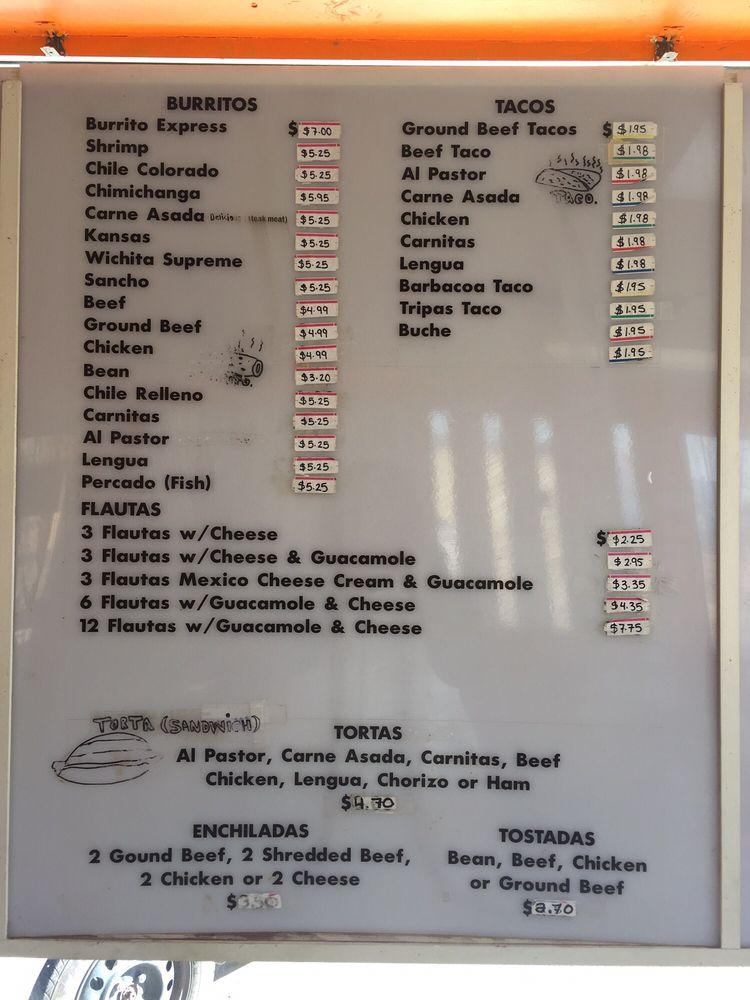 BURRITOS
Burrito Express $ $7.00
Shrimp $5.25
Chile Colorado $5.25
Chimichanga $5.95
Carne Asada (steak meat) $5.25
Kansas $5.25
Wichita Supreme $5.25
Sancho $5.25
Beef $4.99
Ground Beef $4.99
Chicken $4.99
Bean $3.20
Chile Relleno $5.25
Carnitas $5.25
Al Pastor $5.25
Lengua $5.25
Percado (Fish) $5.25
TACOS
Ground Beef Tacos $ $1.95
Beef Taco $1.98
Al Pastor $1.98
Carne Asada $1.98
TACO.
Chicken $1.98
Carnitas $1.98
Lengua $1.98
Barbacoa Taco $1.95
Tripas Taco $1.95
Buche $1.95
$1.95
FLAUTAS
3 Flautas w/Cheese $ $2.25
3 Flautas w/Cheese & Guacamole $2.95
3 Flautas Mexico Cheese Cream & Guacamole $3.35
6 Flautas w/Guacamole & Cheese $4.35
12 Flautas w/Guacamole & Cheese $7.75
TORTA (SANDWICH)
TORTAS
Al Pastor, Carne Asada, Carnitas, Beef
Chicken, Lengua, Chorizo or Ham
$4.70
ENCHILADAS
2 Gound Beef, 2 Shredded Beef,
2 Chicken or 2 Cheese
TOSTADAS
Bean, Beef, Chicken
or Ground Beef
$2.70